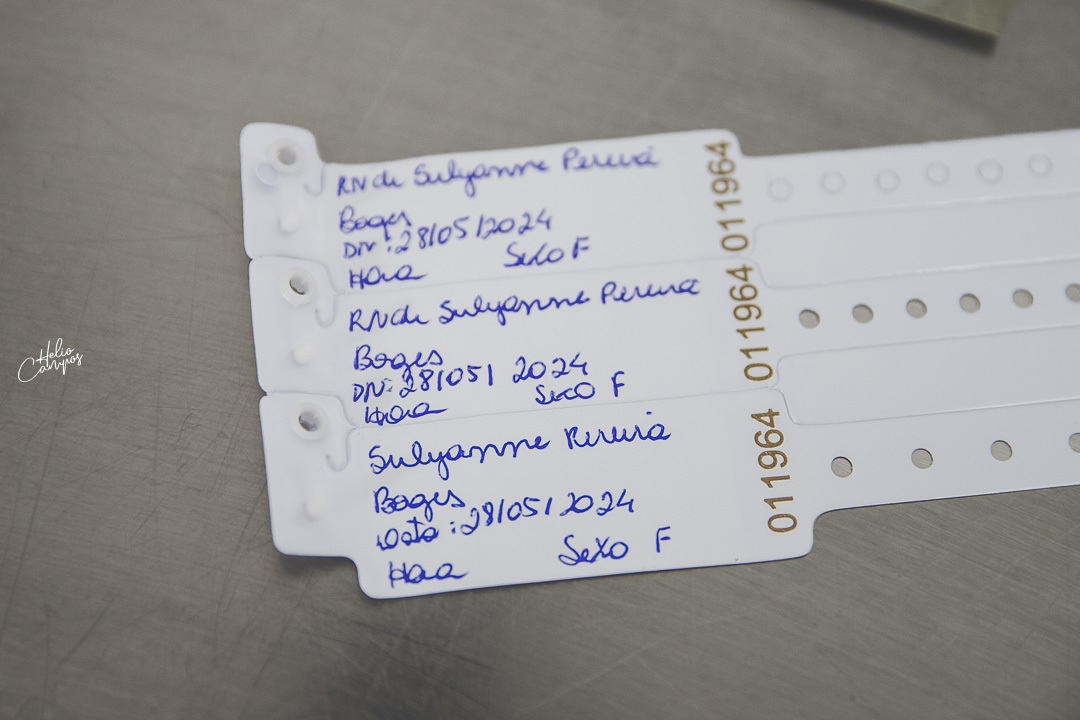 RN de Sulyanne Pereira
Borges
DN: 28/05/2024
Hora Sexo F
011964
RN de Sulyanne Pereira
Borges
DN: 28/05/2024
Hora Sexo F
011964
Sulyanne Pereira
Borges
Data: 28/05/2024
Hora Sexo F
011964
Helio
Campos